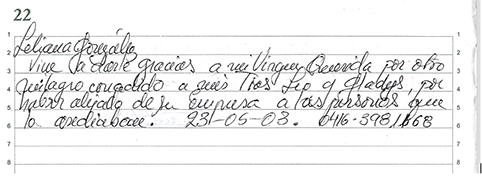 22
Leliana González
Vine a darte gracias a mi Virgen Querida por otro
milagro concedido a mis Tíos Leo y Gladys, por
haber alejado de su empresa a las personas que
lo asediaban. 231-05-03. 0416-3981668